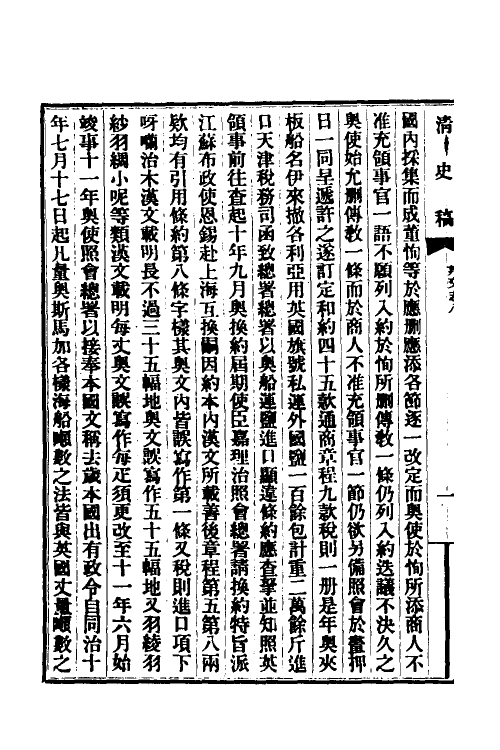 清史稿
國內採集而成董恂等於應刪應添各節逐一改定而奧使於恂所添商人不
准充領事官一語不願列入約於恂所刪傳敎一條仍列入約迭議不決久之
奧使始允刪傳敎一條而於商人不准充領事官一節仍欲另備照會於畫押
日一同呈遞許之遂訂定和約四十五款通商章程九款稅則一册是年奧夾
板船名伊來撤各利亞用英國旗號私運外國鹽一百餘包計重二萬餘斤進
口天津稅務司函致總署總署以奧船運鹽進口顯違條約應查拏並知照英
領事前往查起十年九月奧換約屆期使臣嘉理治照會總署請換約特旨派
江蘇布政使恩錫赴上海互換嗣因約本內漢文所載善後章程第五第八兩
欵均有引用條約第八條字樣其奧文內皆誤寫作第一條又稅則進口項下
呀囒治木漢文載明長不過三十五幅地奧文誤寫作五十五幅地又羽綾羽
紗羽綢小呢等類漢文載明每丈奧文誤寫作每疋須更改至十一年六月始
竣事十一年奧使照會總署以接奉本國文稱去歲本國出有政令自同治十
年七月十七日起凡量奧斯馬加各樣海船噸數之法皆與英國丈量噸數之